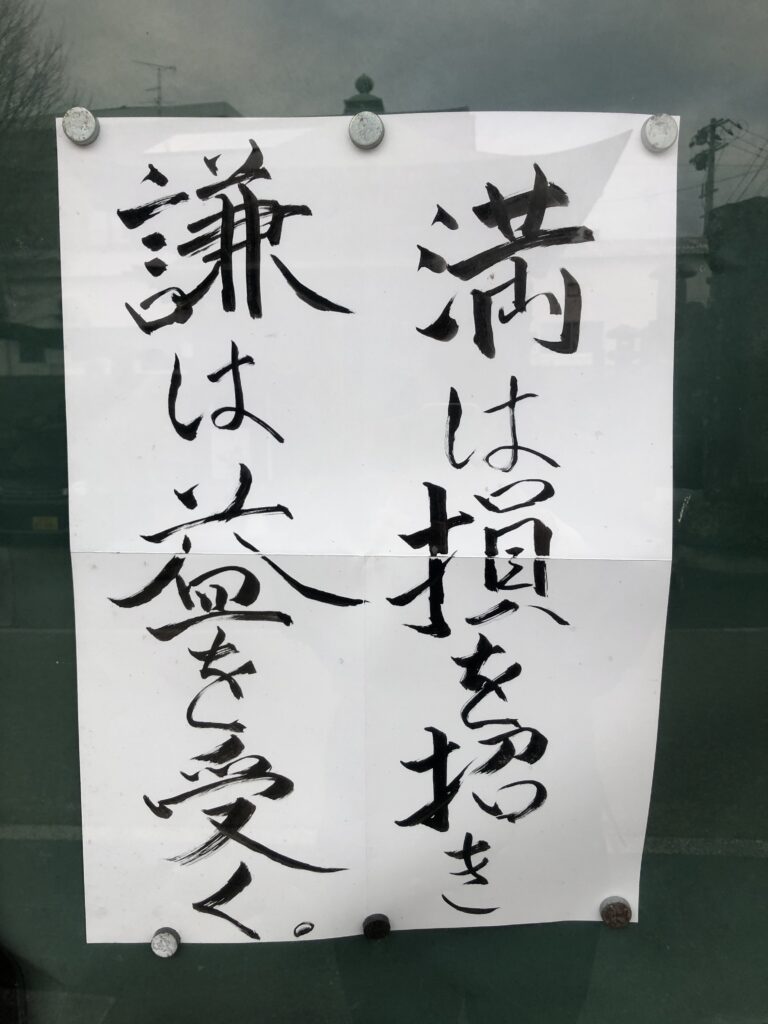 満は損を招き
謙は益を受く。